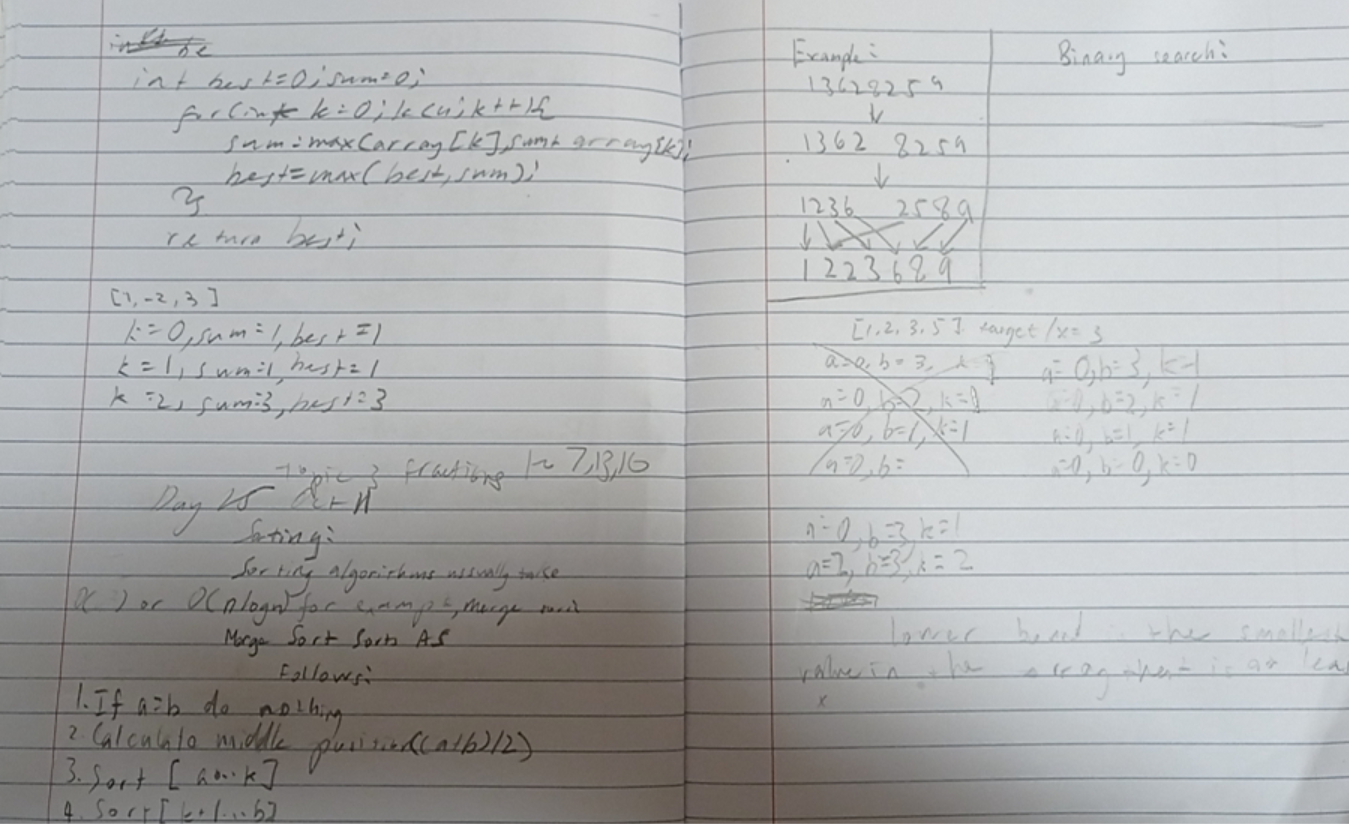 int best=0; sum=0;
for(int k=0; k<n; k++){
sum=max(array[k],sum+array[k];
best=max(best,sum);
}
return best;
[1,-2,3]
k=0, sum=1, best=1
k=1, sum=1, best=1
k=2, sum=3, best=3
Topic 3 fractions 1~7,13,16
Day 25
Sorting:
Sorting algorithms usually take
or O(nlogn) for example, merge
Merge Sort Sorts AS
Follows:
1. If a=b do nothing
2. Calculate middle position((a+b)/2)
3. Sort [a...k]
4. Sort[k+1...b]
Example:
13628259
1362 8259
1236 2589
1223689
Binary search:
[1,2,3,5] target/x=3
a=0, b=3,
a=0, b=2, k=
a=0, b=1, k=1
a=0, b=
a=0, b=3, k=1
a=0, b=2, k=1
a=0, b=1, k=1
a=0, b=0, k=0
a=0, b=3, k=1
a=2, b=3, k=2
lower the smallest
value in the array that is at lea
x